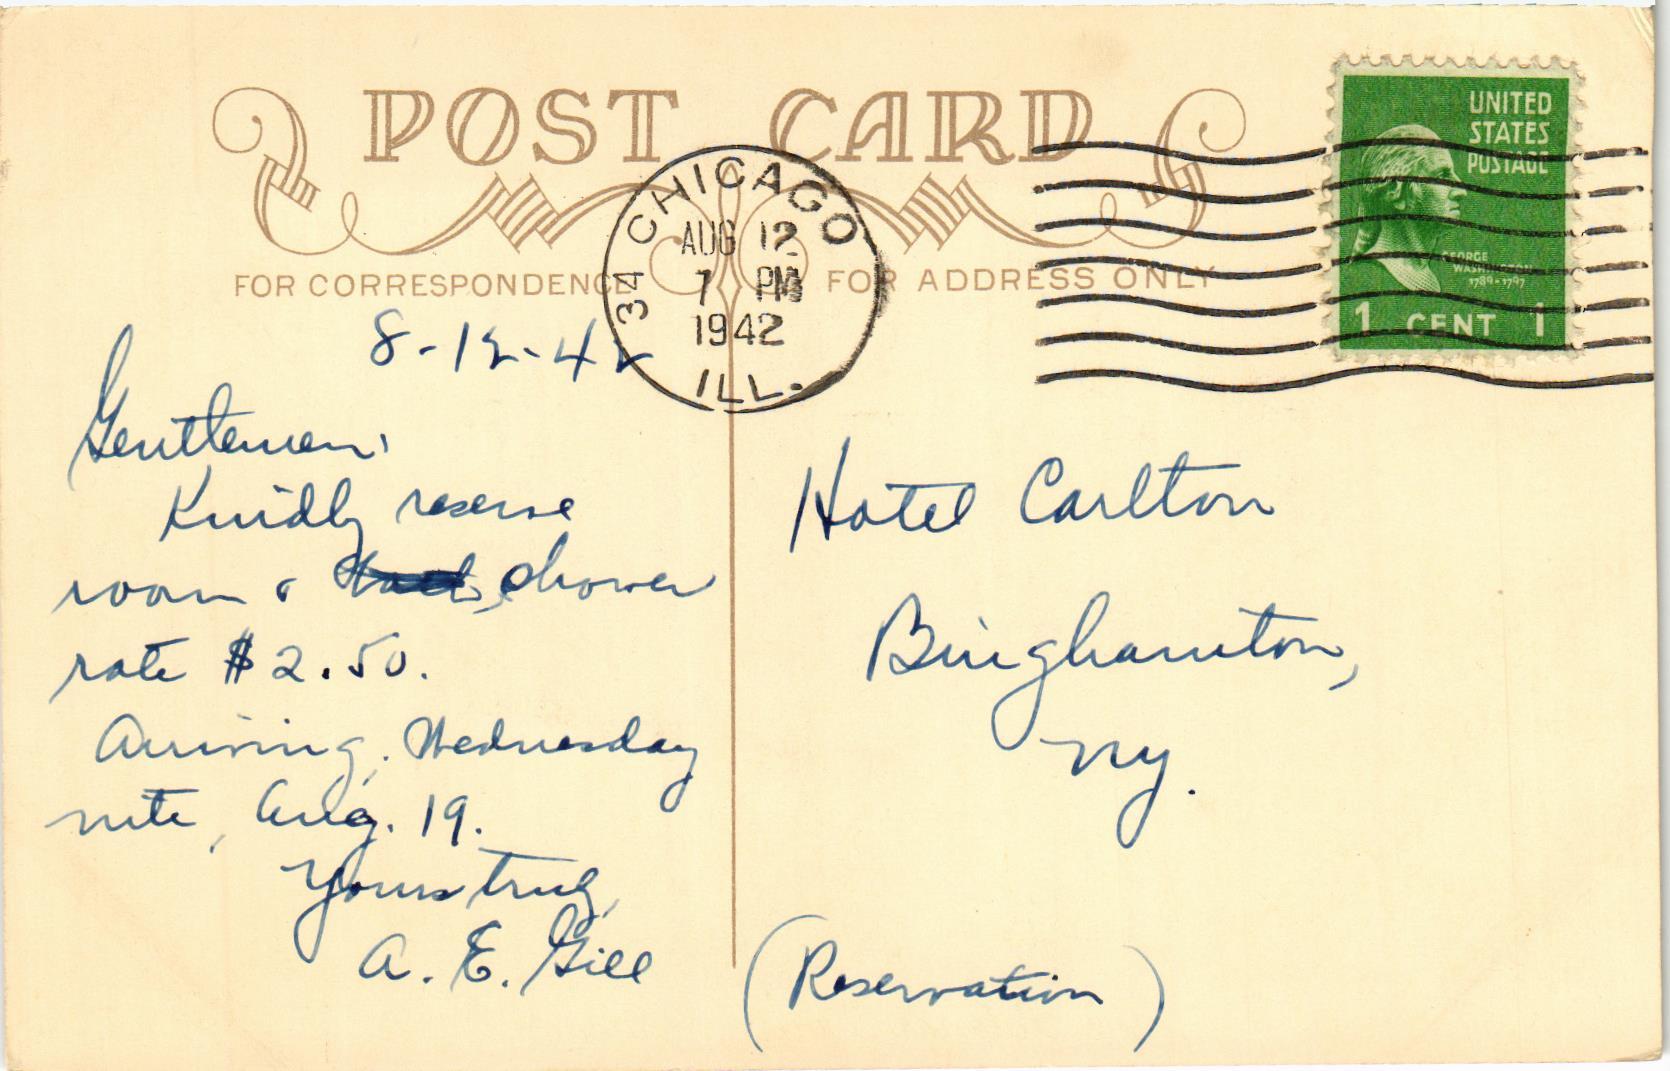 POST CARD
FOR CORRESPONDENCE
FOR ADDRESS ONLY
34 CHICAGO
AUG 12
7 PM
1942
ILL.
UNITED
STATES
POSTAGE
GEORGE
WASHINGTON
1789-1797
1 CENT 1
8-12-42
Gentlemen:
Kindly reserve
room & shower
rate $2.50.
Arriving, Wednesday
nite, Aug. 19.
Yours truly,
A. E. Gill
Hotel Carlton
Binghamton,
NY.
(Reservation)